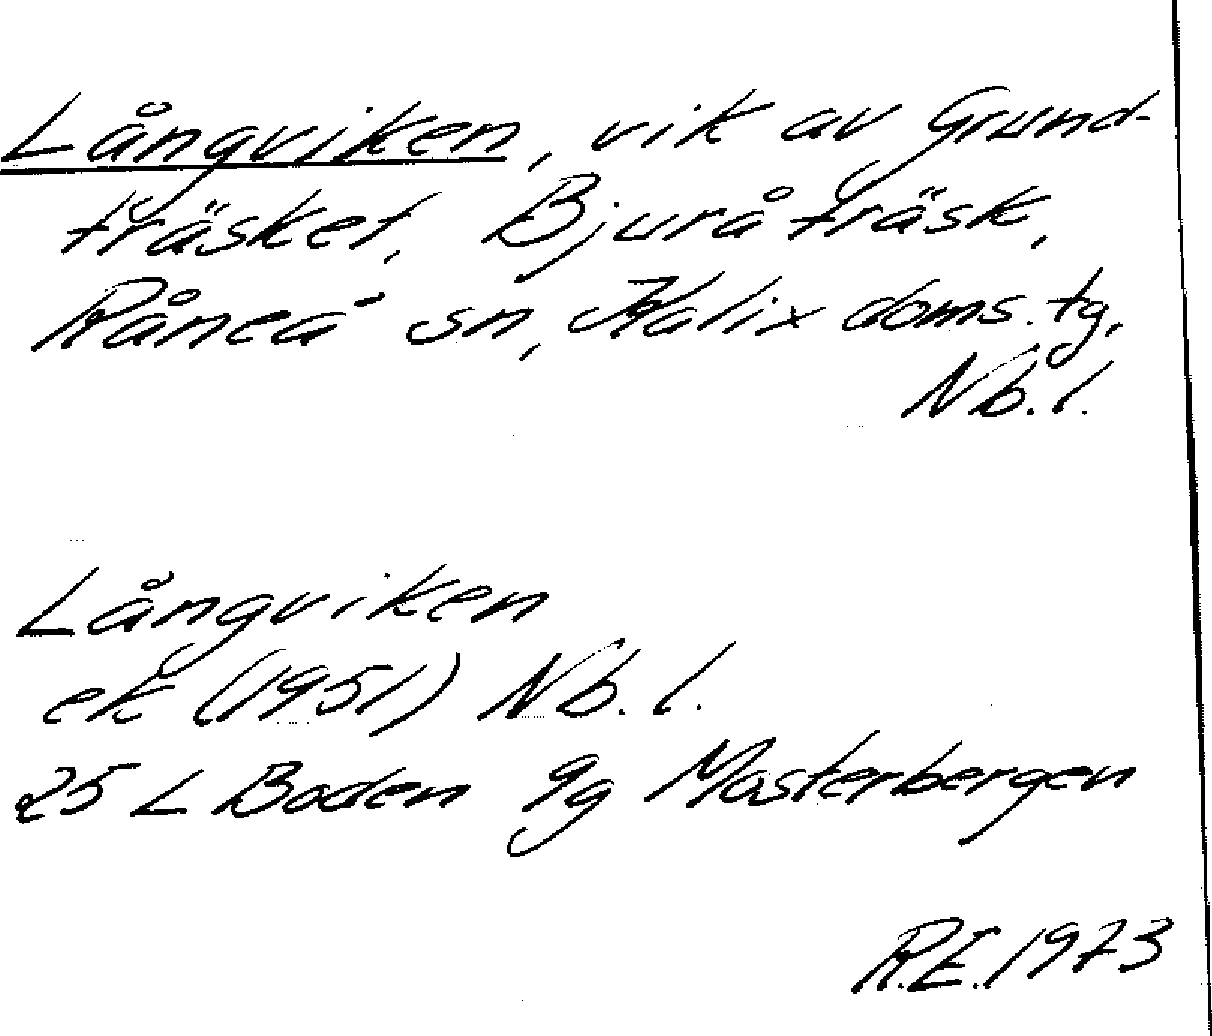 Långviken, vik av Grund-
träsket, Bjuråträsk,
Råneå sn, Kalix doms. tg,
Nb. l.
Långviken
ek (1951) Nb. l.
25 L Boden 9g Mosterbergen
R.E. 1973